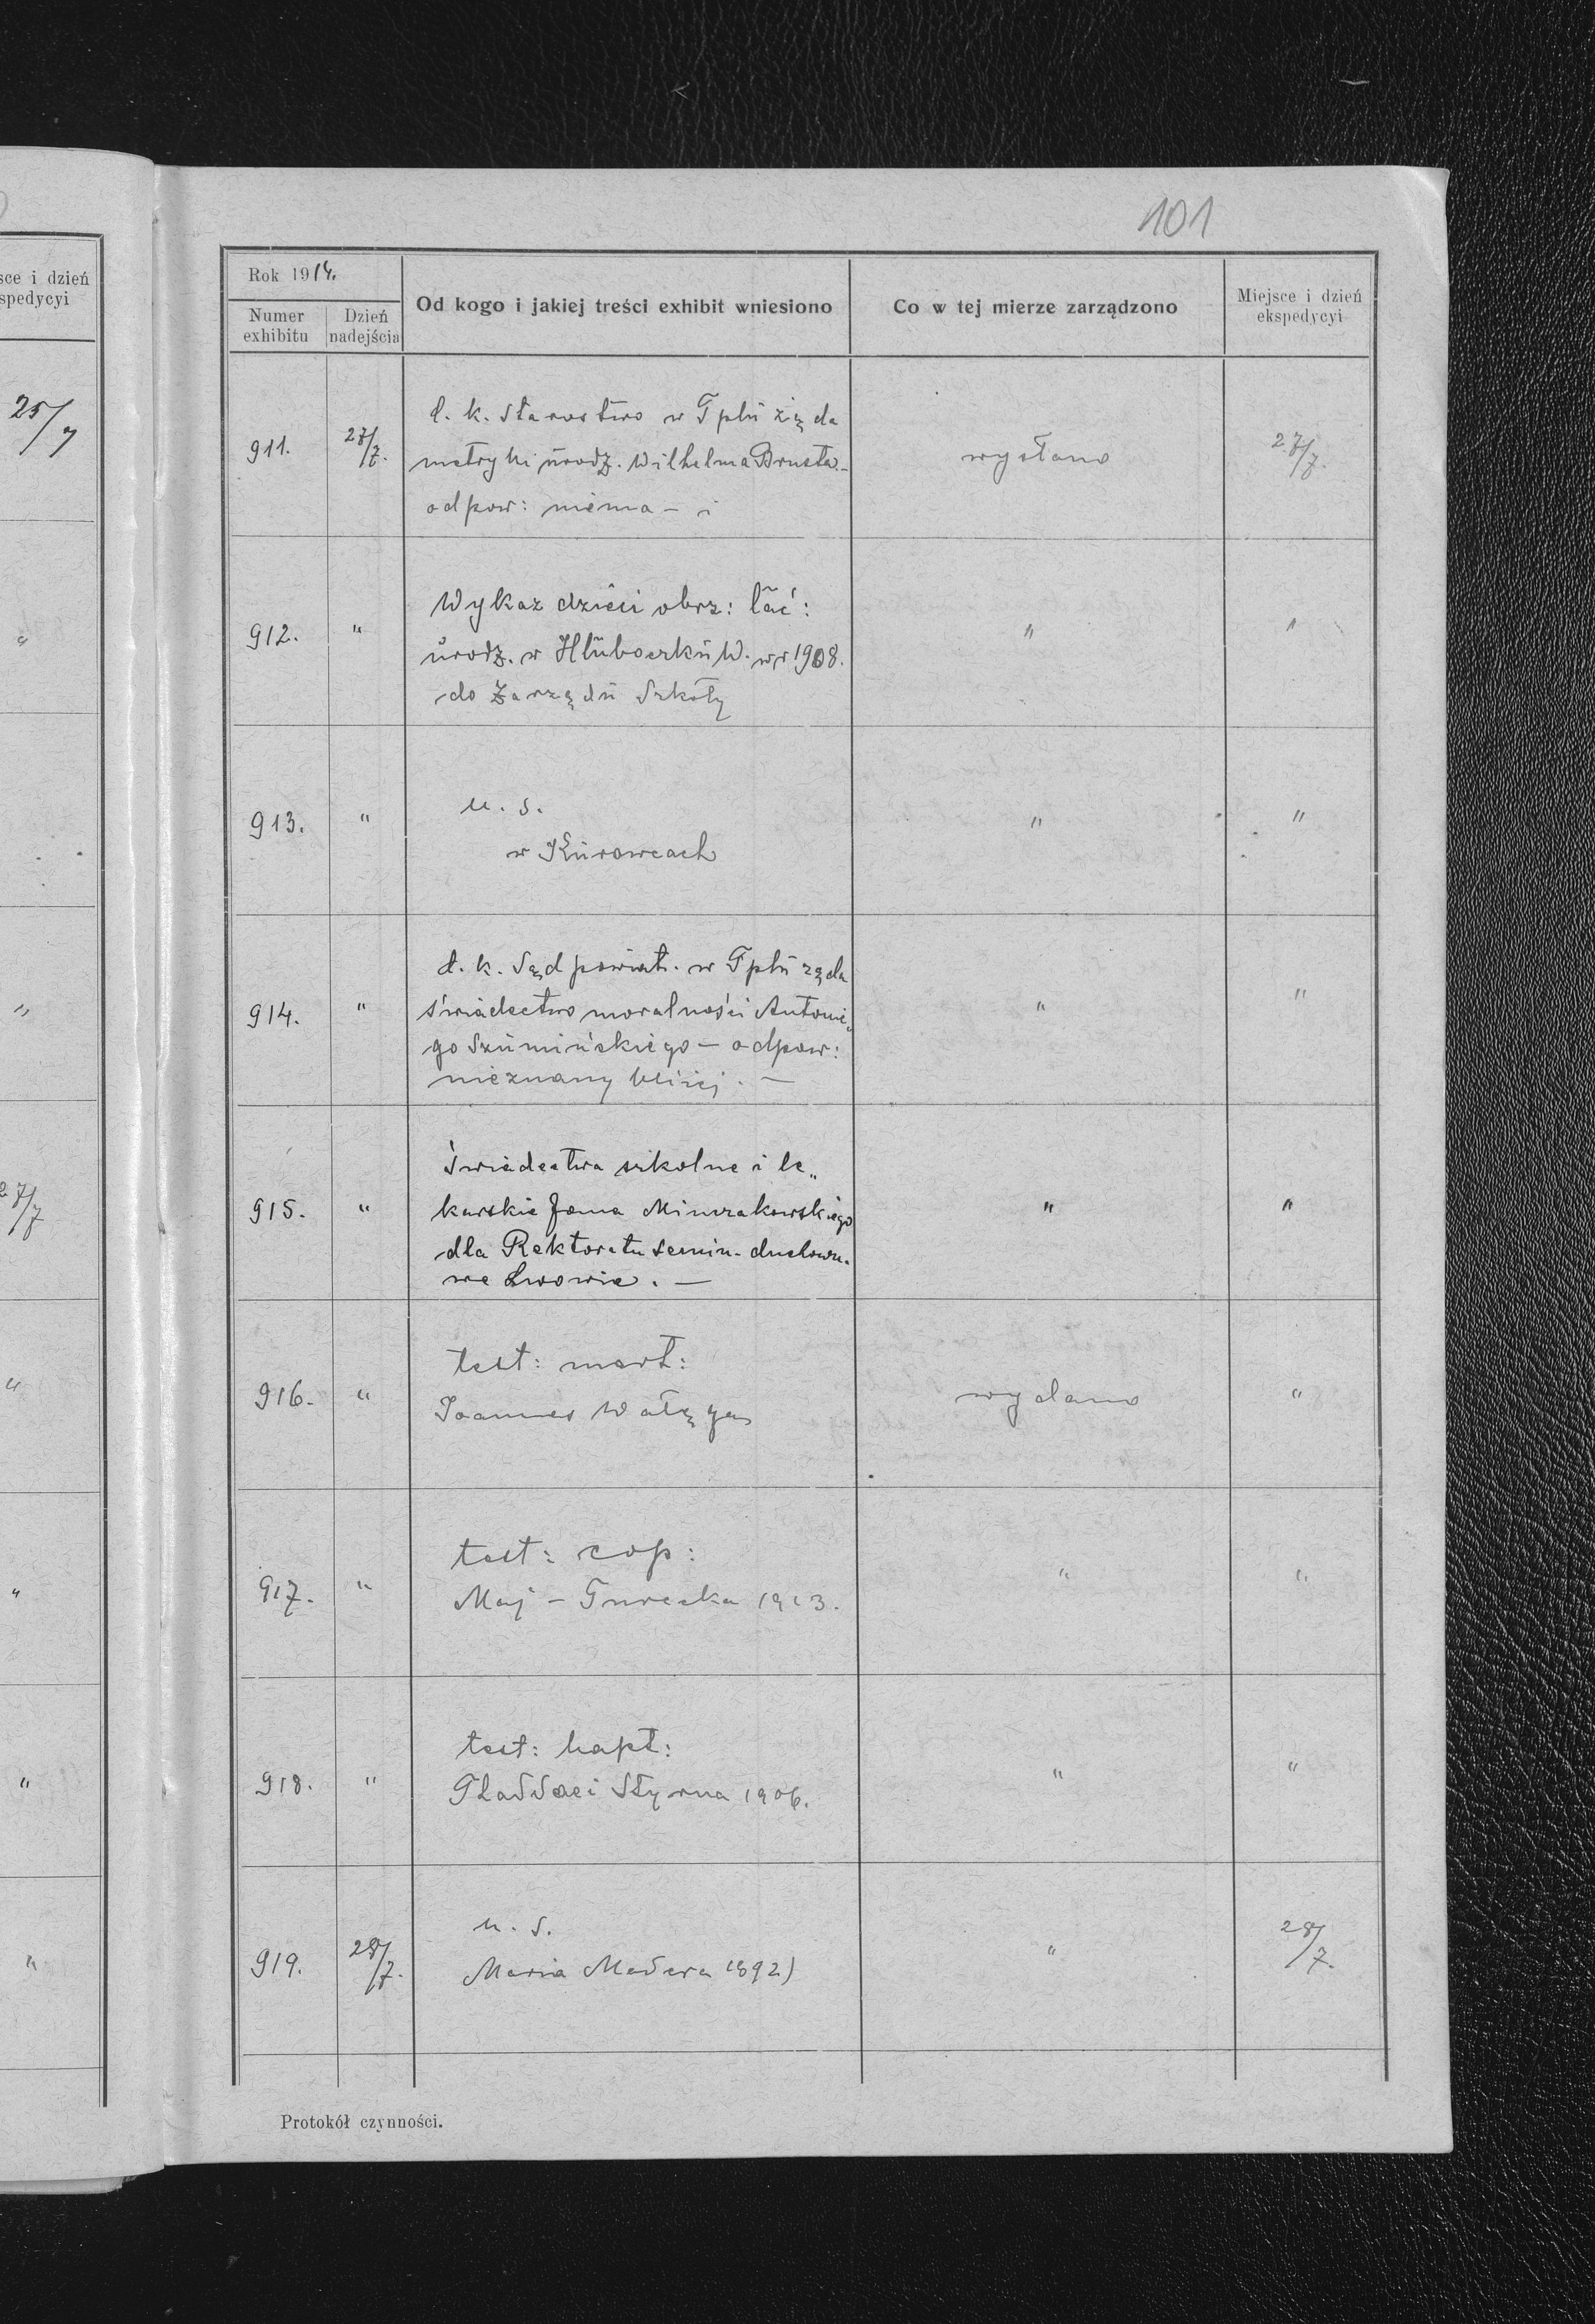 sce i dzień
spedycyi
25/7
"
"
27/7
"
"
"
"
101
Rok 1914.
Numer exhibitu
Dzień nadejścia
Od kogo i jakiej treści exhibit wniesiono
Co w tej mierze zarządzono
Miejsce i dzień ekspedycyi
911.
27/7.
C. k. Starostwo w Tplu żąda
metryki urodz. Wilhelma Brusta-
odpow: niema -
wysłano
27/7.
912.
"
Wykaz dzieci obrz: łać:
urodz. w Hłuboczku W. w r 1908.
do Zarządu Szkoły
"
"
913.
"
u. s.
w Kurowcach
"
"
914.
"
C. k. Sąd powiat. w Tplu żąda
świadectwo moralności Antonie„
go Szumińskiego - odpow:
nieznany bliżej. -
"
"
915.
"
Świadectwa szkolne i le„
karskie Jana Mimrakowskiego
dla Rektoratu semin. duchown.
we Lwowie. -
"
"
916.
"
test: mort:
Joannes Wałęga
wydano
"
917.
"
test: cop:
Maj - Turecka 1913.
"
"
918.
"
test: bapt:
Thaddaei Styrna 1906.
"
"
919.
28/7.
u. s.
Maria Madera 1892)
"
28/7.
Protokół czynności.